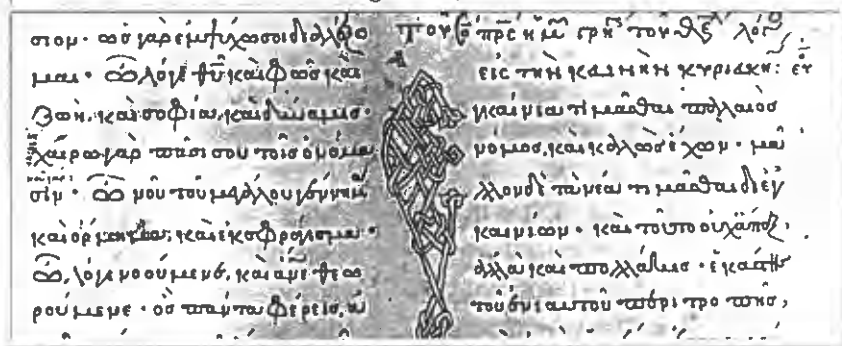 σιον· ὡς γὰρ ἐμψύχω σοι διαλέξο
μαι· ὦ λόγε θῦ καὶ φῶς καὶ
ζωὴ, καὶ σοφία, καὶ δύναμις·
χαίρω γὰρ πᾶσι σου τοῖς ὀνόμα
σιν· ὦ νοῦ τοῦ μεγάλου γέννημα
καὶ ὅρμημα, καὶ ἐκσφράγισμα·
ὦ λόγε νοούμενε, καὶ ἄνε θεω
ρούμενε· ὃς πάντα φέρεις, ἀ
Τοῦ πρς ἡμῶν γρη τοῦ θεο λόγ
εἰς τὴν καινὴν κυριακήν:
γκαίνια τιμᾶσθαι παλαιὸς
νόμος, καὶ καλῶς ἔχων· μᾶ
λλον δὲ τὰ νέα τιμᾶσθαι δι ἐγ
καινίων· καὶ τοῦτο οὐχ ἅπαξ,
ἀλλὰ καὶ πολλάκις· ἑκάστης
τοῦ ἐνιαυτοῦ περιτροπῆς,